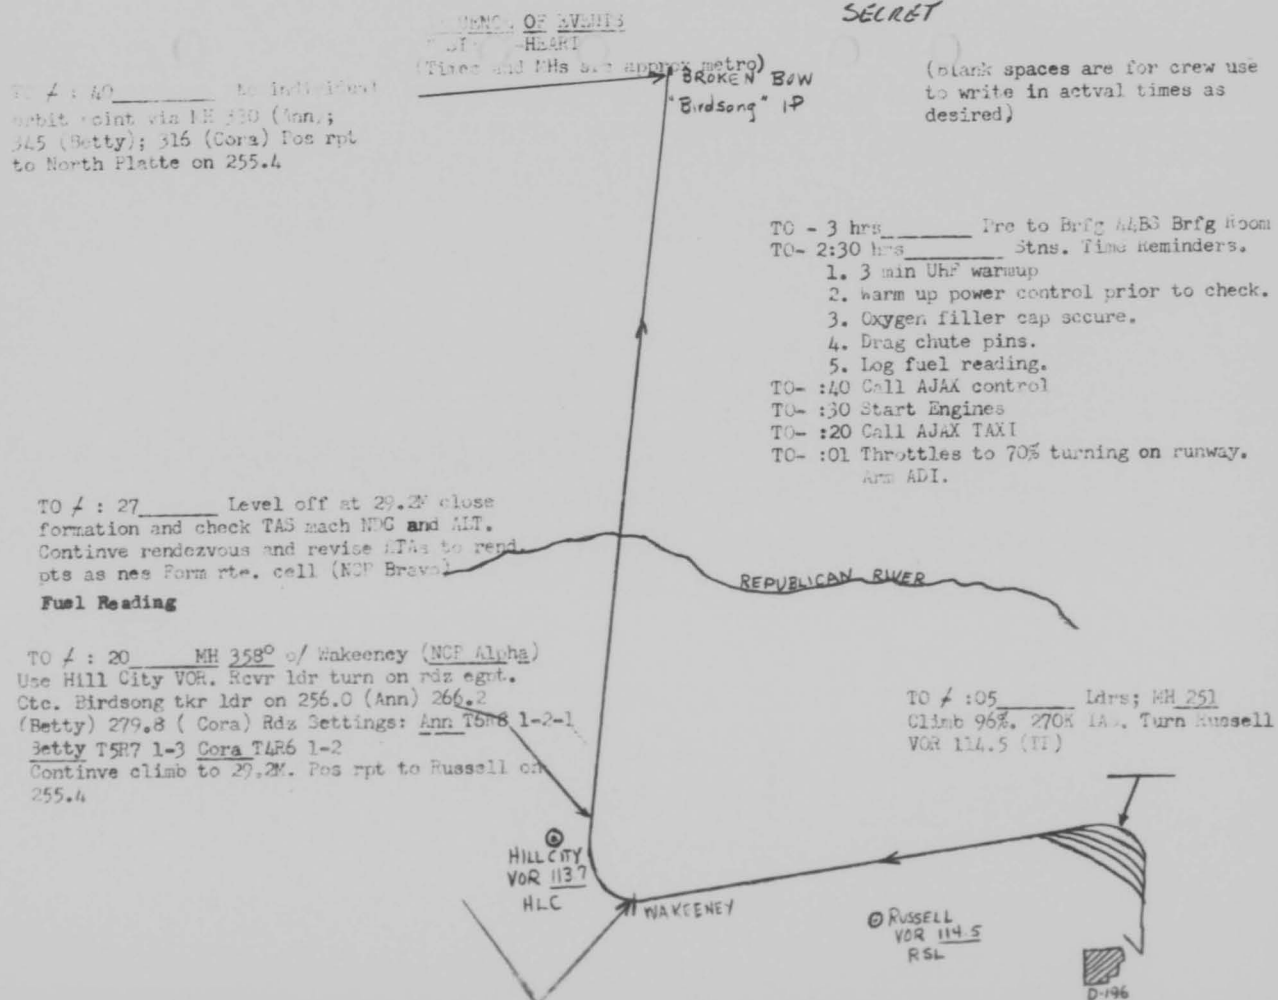 SECRET
OF EVENTS
-HEART
(Times and MHs are approx metro)
BROKEN BOW
"Birdsong" IP
(blank spaces are for crew use
to write in actval times as
desired)
TO ≠ : 40________ to individual
orbit point via MH 330 (Ann);
345 (Betty); 316 (Cora) Pos rpt
to North Platte on 255.4
TO - 3 hrs________ Pre to Brfg Brfg Room
TO- 2:30 hrs________ Stns. Time Reminders.
1. 3 min UHF warmup
2. Warm up power control prior to check.
3. Oxygen filler cap secure.
4. Drag chute pins.
5. Log fuel reading.
TO- :40 Call AJAX control
TO- :30 Start Engines
TO- :20 Call AJAX TAXI
TO- :01 Throttles to 70% turning on runway.
Arm ADI.
TO ≠ : 27________ Level off at 29.2M close
formation and check TAS mach NDG and ALT.
Continve rendezvous and revise ETAs to rend.
pts as nes Form rte. cell (NCP Bravo)
Fuel Reading
REPUBLICAN RIVER
TO ≠ : 20______ MH 358° o/ Wakeeney (NCP Alpha)
Use Hill City VOR. Rcvr ldr turn on rdz eqpt.
Ctc. Birdsong tkr ldr on 256.0 (Ann) 266.2
(Betty) 279.8 ( Cora) Rdz Settings: Ann T6R8 1-2-1
Betty T5R7 1-3 Cora T4R6 1-2
Continve climb to 29.2M. Pos rpt to Russell on
255.4
TO ≠ :05________ Ldrs; MH 251
Climb 96%. 270K IAS. Turn Russell
VOR 114.5 (TI)
HILL CITY
VOR 113.7
HLC
WAKEENEY
RUSSELL
VOR 114.5
RSL
D-196